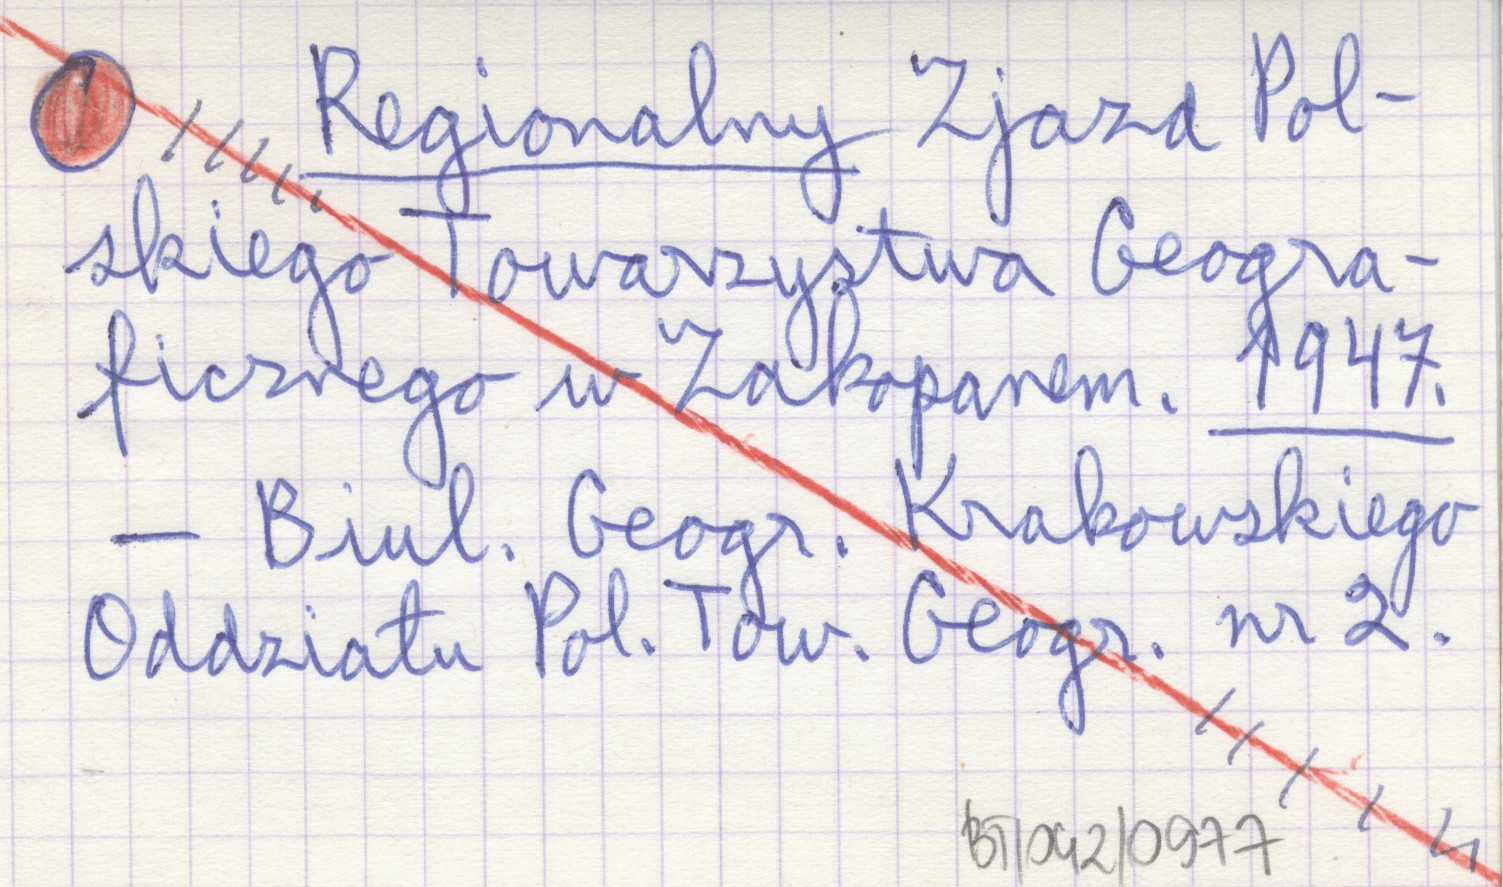 1 Regionalny Zjazd Pol-
skiego Towarzystwa Geogra-
ficznego w Zakopanem. 1947.
— Biul. Geogr. Krakowskiego
Oddziału Pol. Tow. Geogr. nr 2.
BT/042/0977